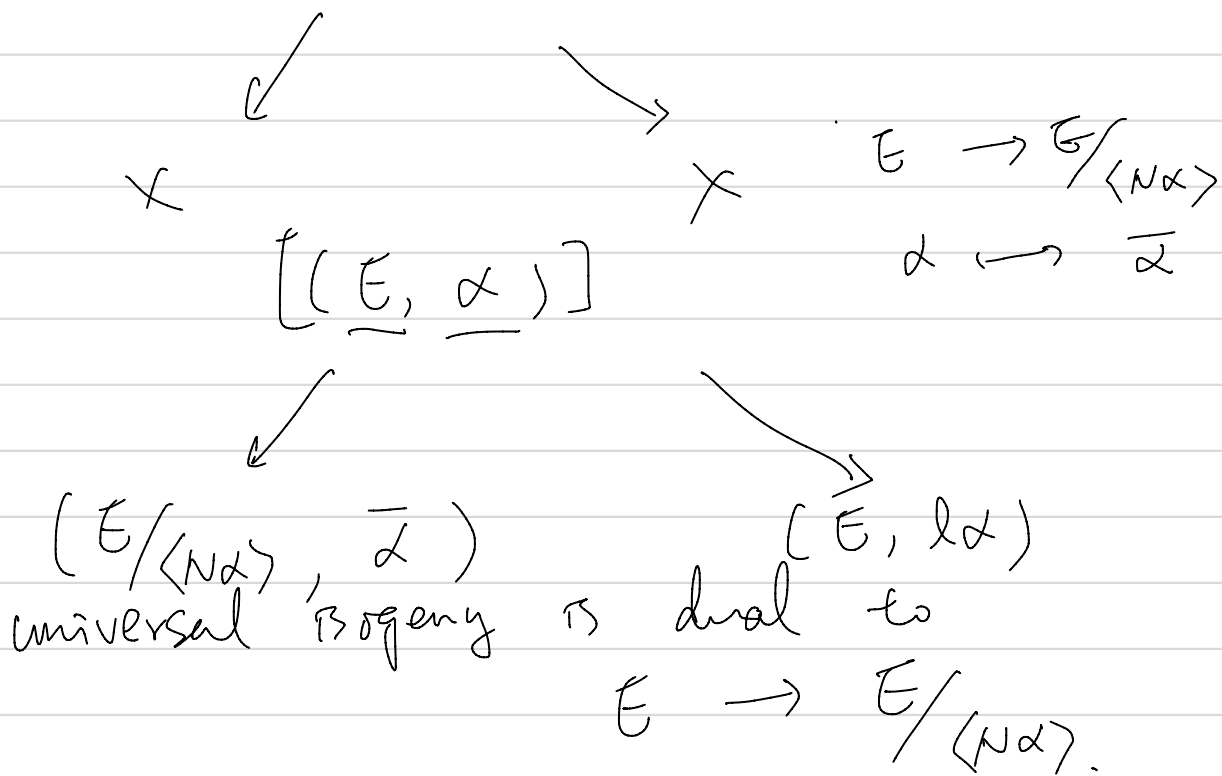 X X E → E/⟨Nα⟩
[(E, α)] α ↦ ᾱ
(E/⟨Nα⟩, ᾱ) (E, lα)
universal isogeny is dual to
E → E/⟨Nα⟩.